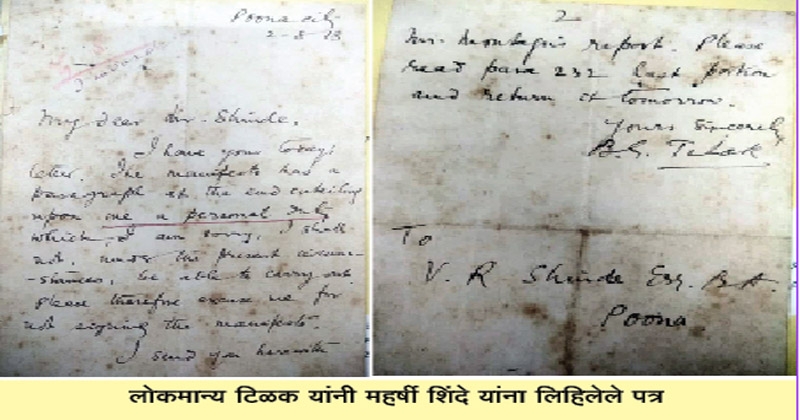 Poona city
2-8-18
My dear Mr. Shinde,
I have your today's
letter. The manifesto has a
paragraph at the end entailing
upon me a personal duty
which, I am sorry, I shall
not, under the present circum-
-stances, be able to carry out.
Please therefore excuse me for
not signing the manifesto.
I send you herewith
2
Mr. Montagu's report. Please
read para 232 last portion
and return it tomorrow.
Yours sincerely
B.G. Tilak
To
V. R Shinde Esq. B.A.
Poona
लोकमान्य टिळक यांनी महर्षी शिंदे यांना लिहिलेले पत्र